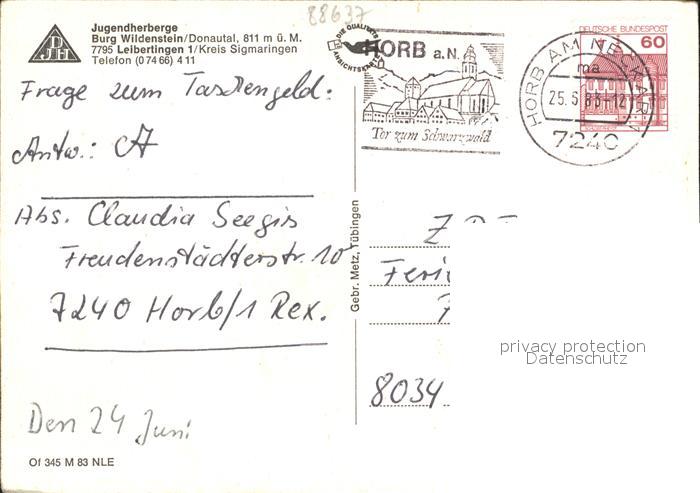 88637
Jugendherberge
Burg Wildenstein/Donautal, 811 m ü. M.
7795 Leibertingen 1/Kreis Sigmaringen
Telefon (07466) 411
DJH
DIE QUALITÄTS
ANSICHTSKARTE
HORB a.N.
Tor zum Schwarzwald
HORB AM NECKAR 1
ma
25.5.83-12
7240
DEUTSCHE BUNDESPOST
60
Frage zum Taschengeld:
Antw.: A
Abs. Claudia Seegis
Freudenstädterstr. 10
7240 Horb/1 Rex.
Den 24 Juni
Gebr. Metz, Tübingen
8034
privacy protection
Datenschutz
Of 345 M 83 NLE